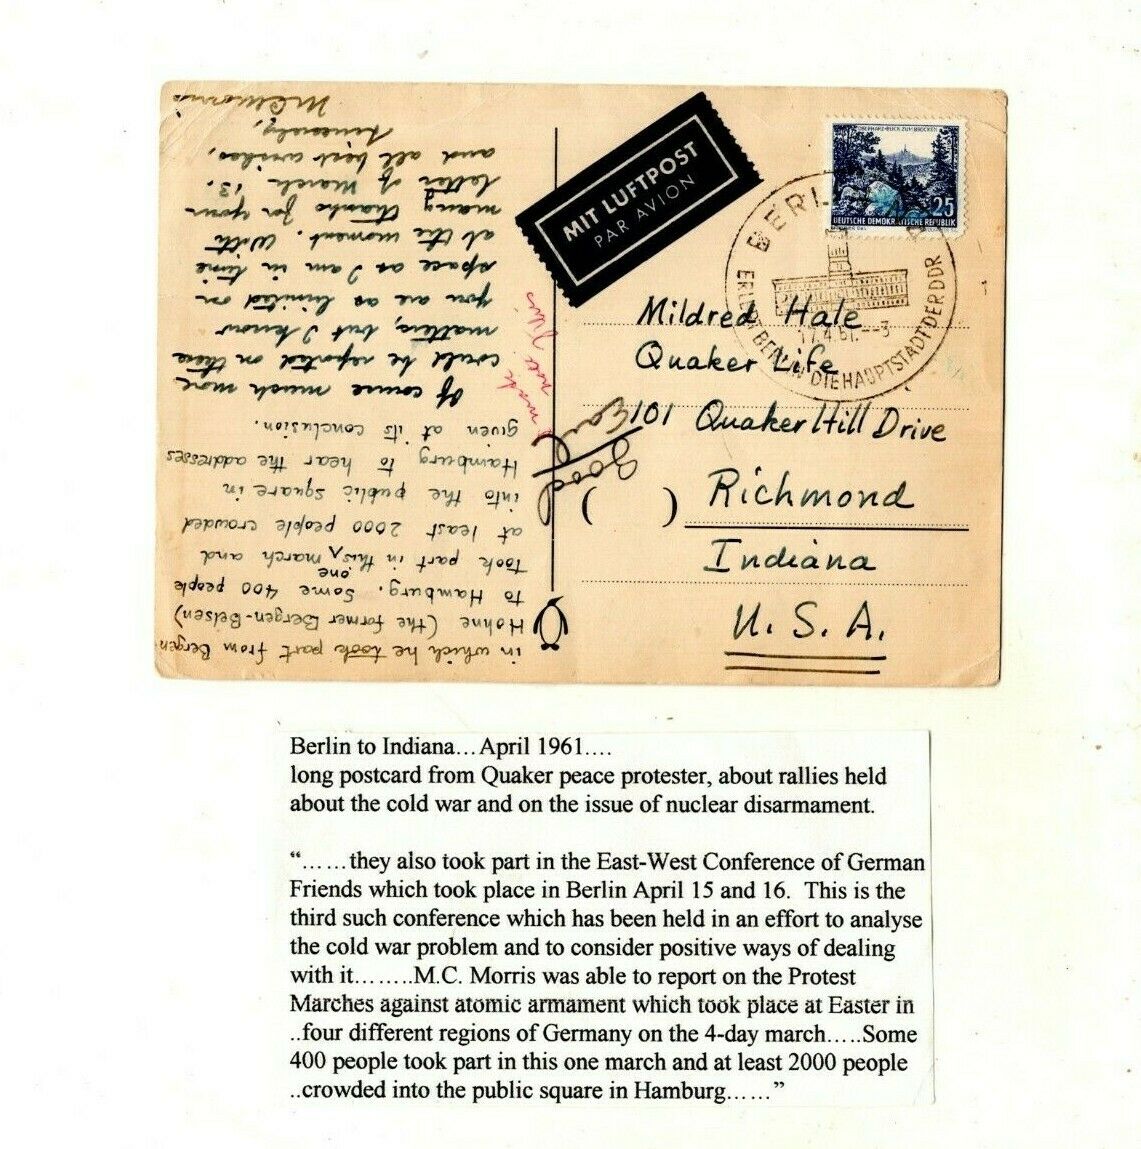 in which he took part from Bergen-
Hohne (the former Bergen-Belsen)
to Hamburg. Some 400 people
took part in this one march and
at least 2000 people crowded
into the public square in
Hamburg to hear the addresses
given at its conclusion.
Of course much more
could be reported on these
matters, but I know
you are as limited on
space as I am in time
at the moment. With
many thanks for your
letter of March 13.
and all best wishes,
Sincerely,
MCMorris
MIT LUFTPOST
PAR AVION
OBERHARZ-BLICK ZUM BROCKEN
25
DEUTSCHE DEMOKRATISCHE REPUBLIK
BERLIN
17.4.61.--3
ERLEBT BERLIN DIE HAUPTSTADT DER DDR
Mildred Hale
Quaker Life
101 Quaker Hill Drive
( ) Richmond
Indiana
U.S.A.
good
made
Berlin to Indiana…April 1961….
long postcard from Quaker peace protester, about rallies held
about the cold war and on the issue of nuclear disarmament.
“……they also took part in the East-West Conference of German
Friends which took place in Berlin April 15 and 16. This is the
third such conference which has been held in an effort to analyse
the cold war problem and to consider positive ways of dealing
with it……..M.C. Morris was able to report on the Protest
Marches against atomic armament which took place at Easter in
..four different regions of Germany on the 4-day march…..Some
400 people took part in this one march and at least 2000 people
..crowded into the public square in Hamburg……”